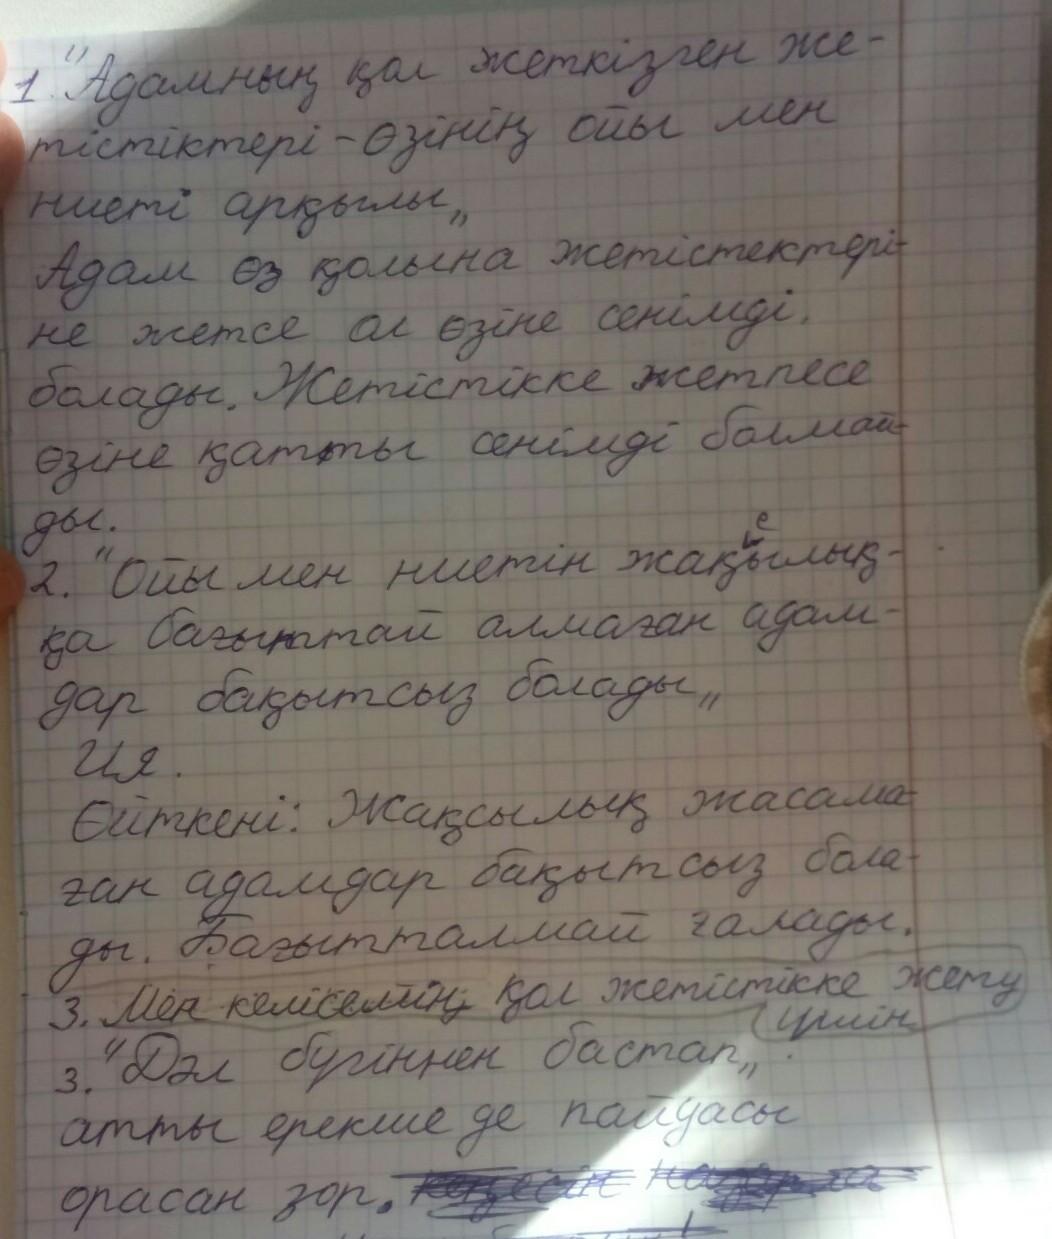 1. "Адамның қол жеткізген же-
тістіктері - өзінің ойы мен
ниеті арқылы„
Адам өз қолына жетістектері-
не жетсе ол өзіне сенімді.
болады. Жетістікке жетпесе
өзіне қатты сенімді болмай-
ды.
с
2. "Ойы мен ниетін жақылық-
қа бағыттай алмаған адам-
дар бақытсыз болады„
Ия.
Өйткені: Жақсылық жасама-
ған адамдар бақытсыз бола-
ды. Бағытталмай ғалады.
3. Мен келісемін, қол жетістікке жету
үшін
3. "Дәл бүгіннен бастап„
атты ерекше де пайдасы
орасан зор.